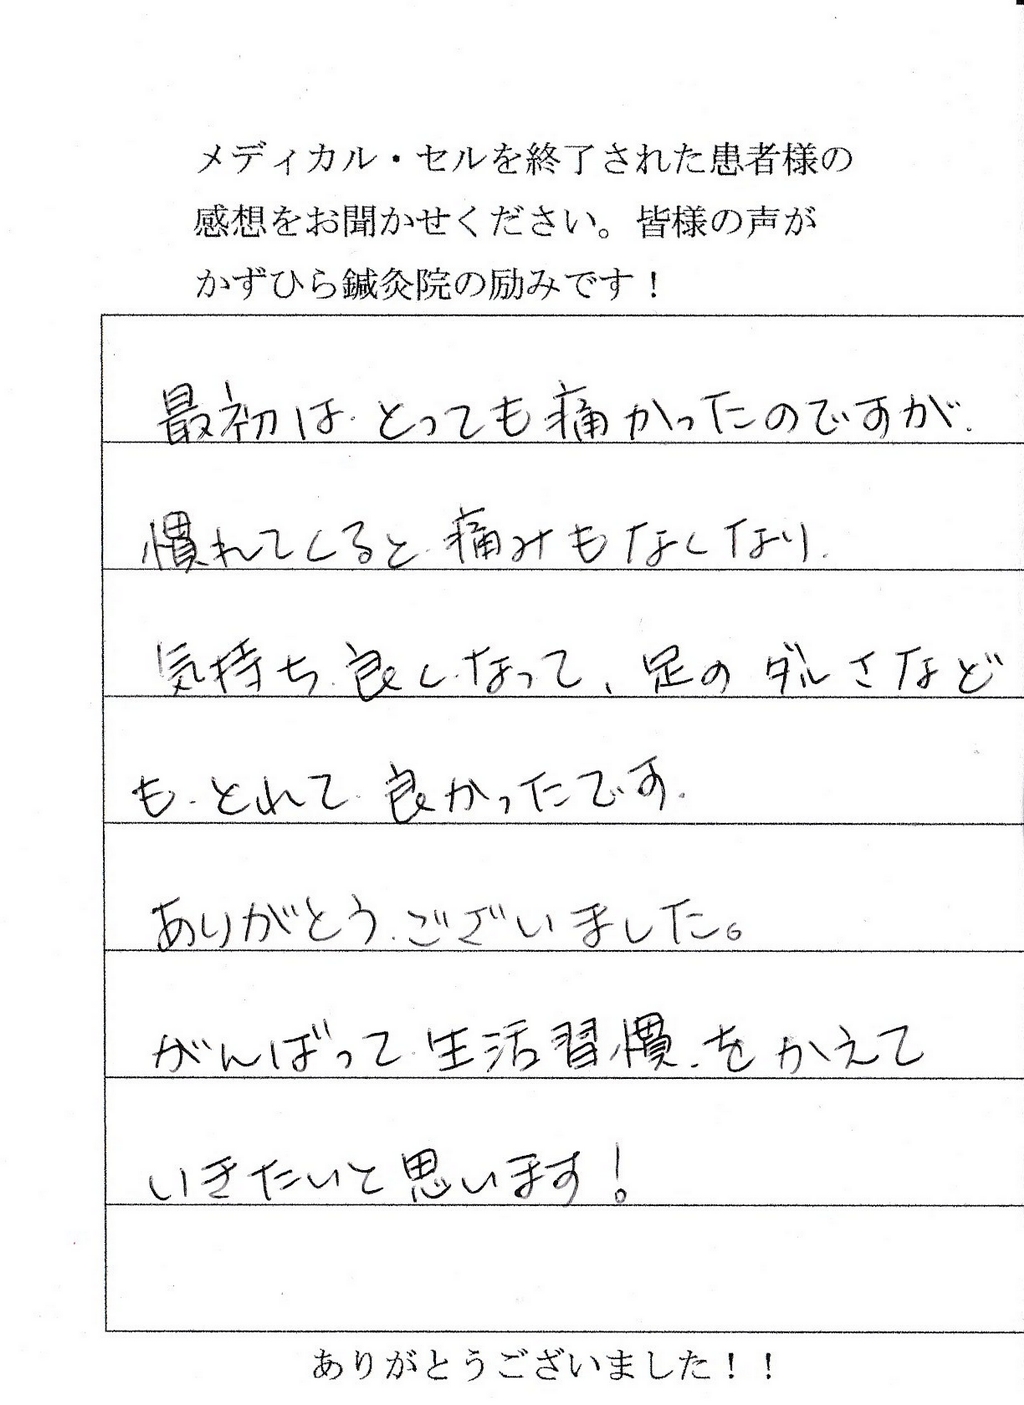 メディカル・セルを終了された患者様の
感想をお聞かせください。皆様の声が
かずひら鍼灸院の励みです！
最初は.とっても痛かったのですが.
慣れてくると.痛みもなくなり.
気持ち良くなって、足のダルさなど
も.とれて.良かったです.
ありがとう.ございました。
がんばって.生活習慣.をかえて
いきたいと思います！
ありがとうございました！！